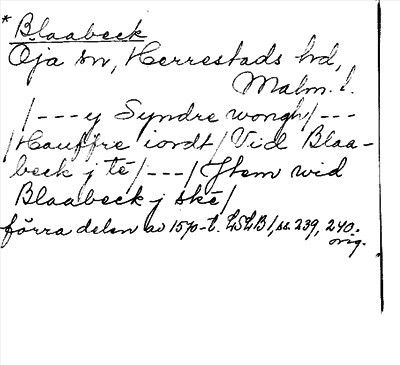 * Blaabeck
Öja sn, Herrestads hd,
Malm. l.
/--- y Syndre wongh/---
/Hauffre iordt/Vid Blaa-
beck j tē/---/Jtem wid
Blaabeck j skē/
förra delen av 1570-t. LSLB I, ss. 239, 240.
orig.